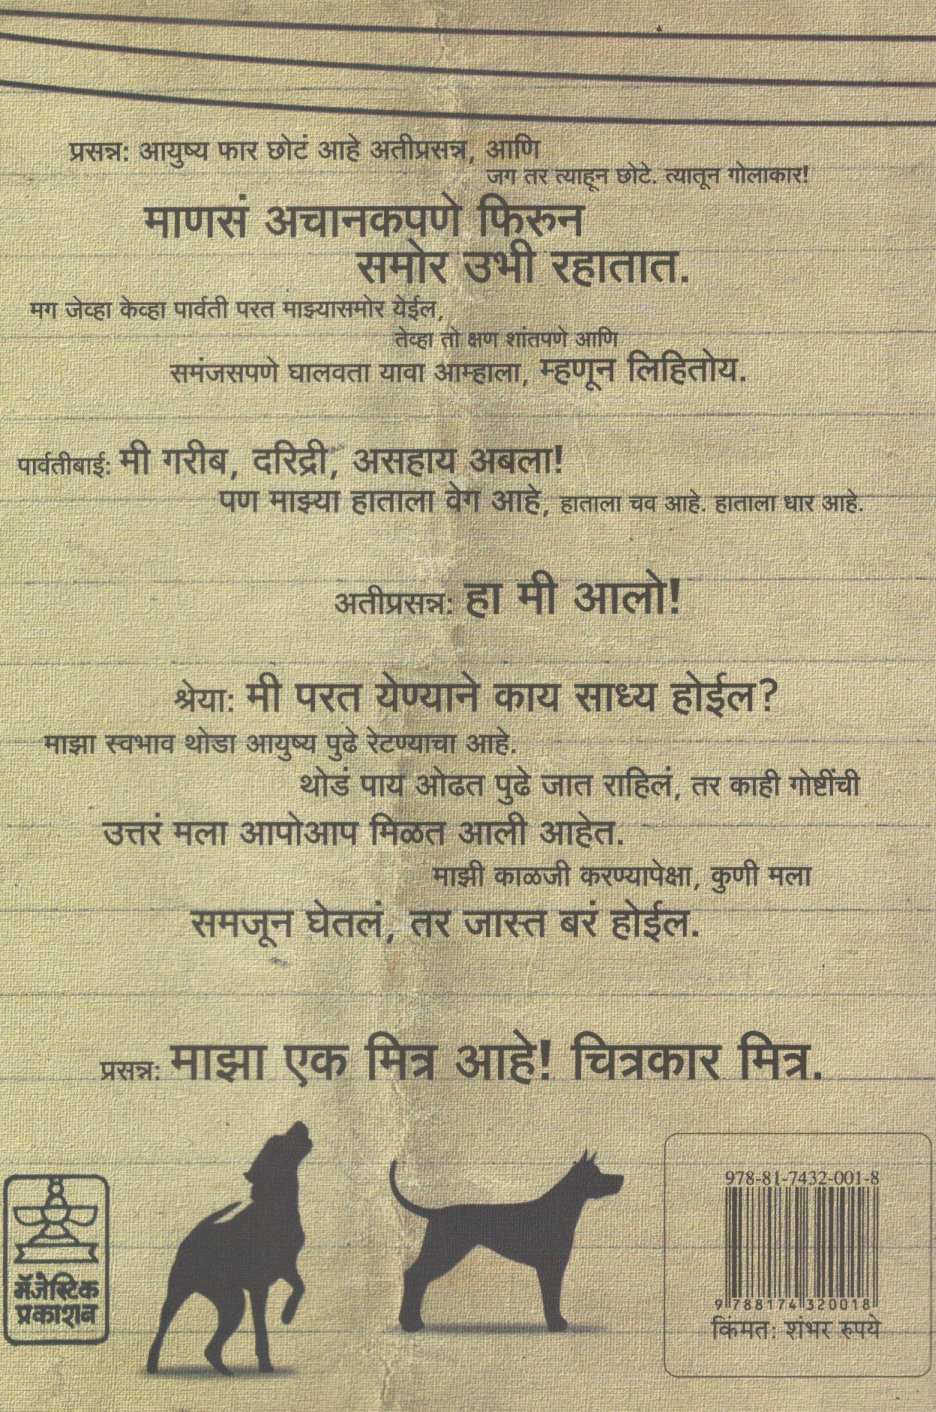 प्रसन्न: आयुष्य फार छोटं आहे अतीप्रसन्न, आणि
जग तर त्याहून छोटे. त्यातून गोलाकार!
माणसं अचानकपणे फिरुन
समोर उभी रहातात.
मग जेव्हा केव्हा पार्वती परत माझ्यासमोर येईल,
तेव्हा तो क्षण शांतपणे आणि
समंजसपणे घालवता यावा आम्हाला, म्हणून लिहितोय.
पार्वतीबाई: मी गरीब, दरिद्री, असहाय अबला!
पण माझ्या हाताला वेग आहे, हाताला चव आहे. हाताला धार आहे.
अतीप्रसन्न: हा मी आलो!
श्रेया: मी परत येण्याने काय साध्य होईल?
माझा स्वभाव थोडा आयुष्य पुढे रेटण्याचा आहे.
थोडं पाय ओढत पुढे जात राहिलं, तर काही गोष्टींची
उत्तरं मला आपोआप मिळत आली आहेत.
माझी काळजी करण्यापेक्षा, कुणी मला
समजून घेतलं, तर जास्त बरं होईल.
प्रसन्न: माझा एक मित्र आहे! चित्रकार मित्र.
मॅजेस्टिक
प्रकाशन
978-81-7432-001-8
9 788174 320018
किंमत: शंभर रुपये